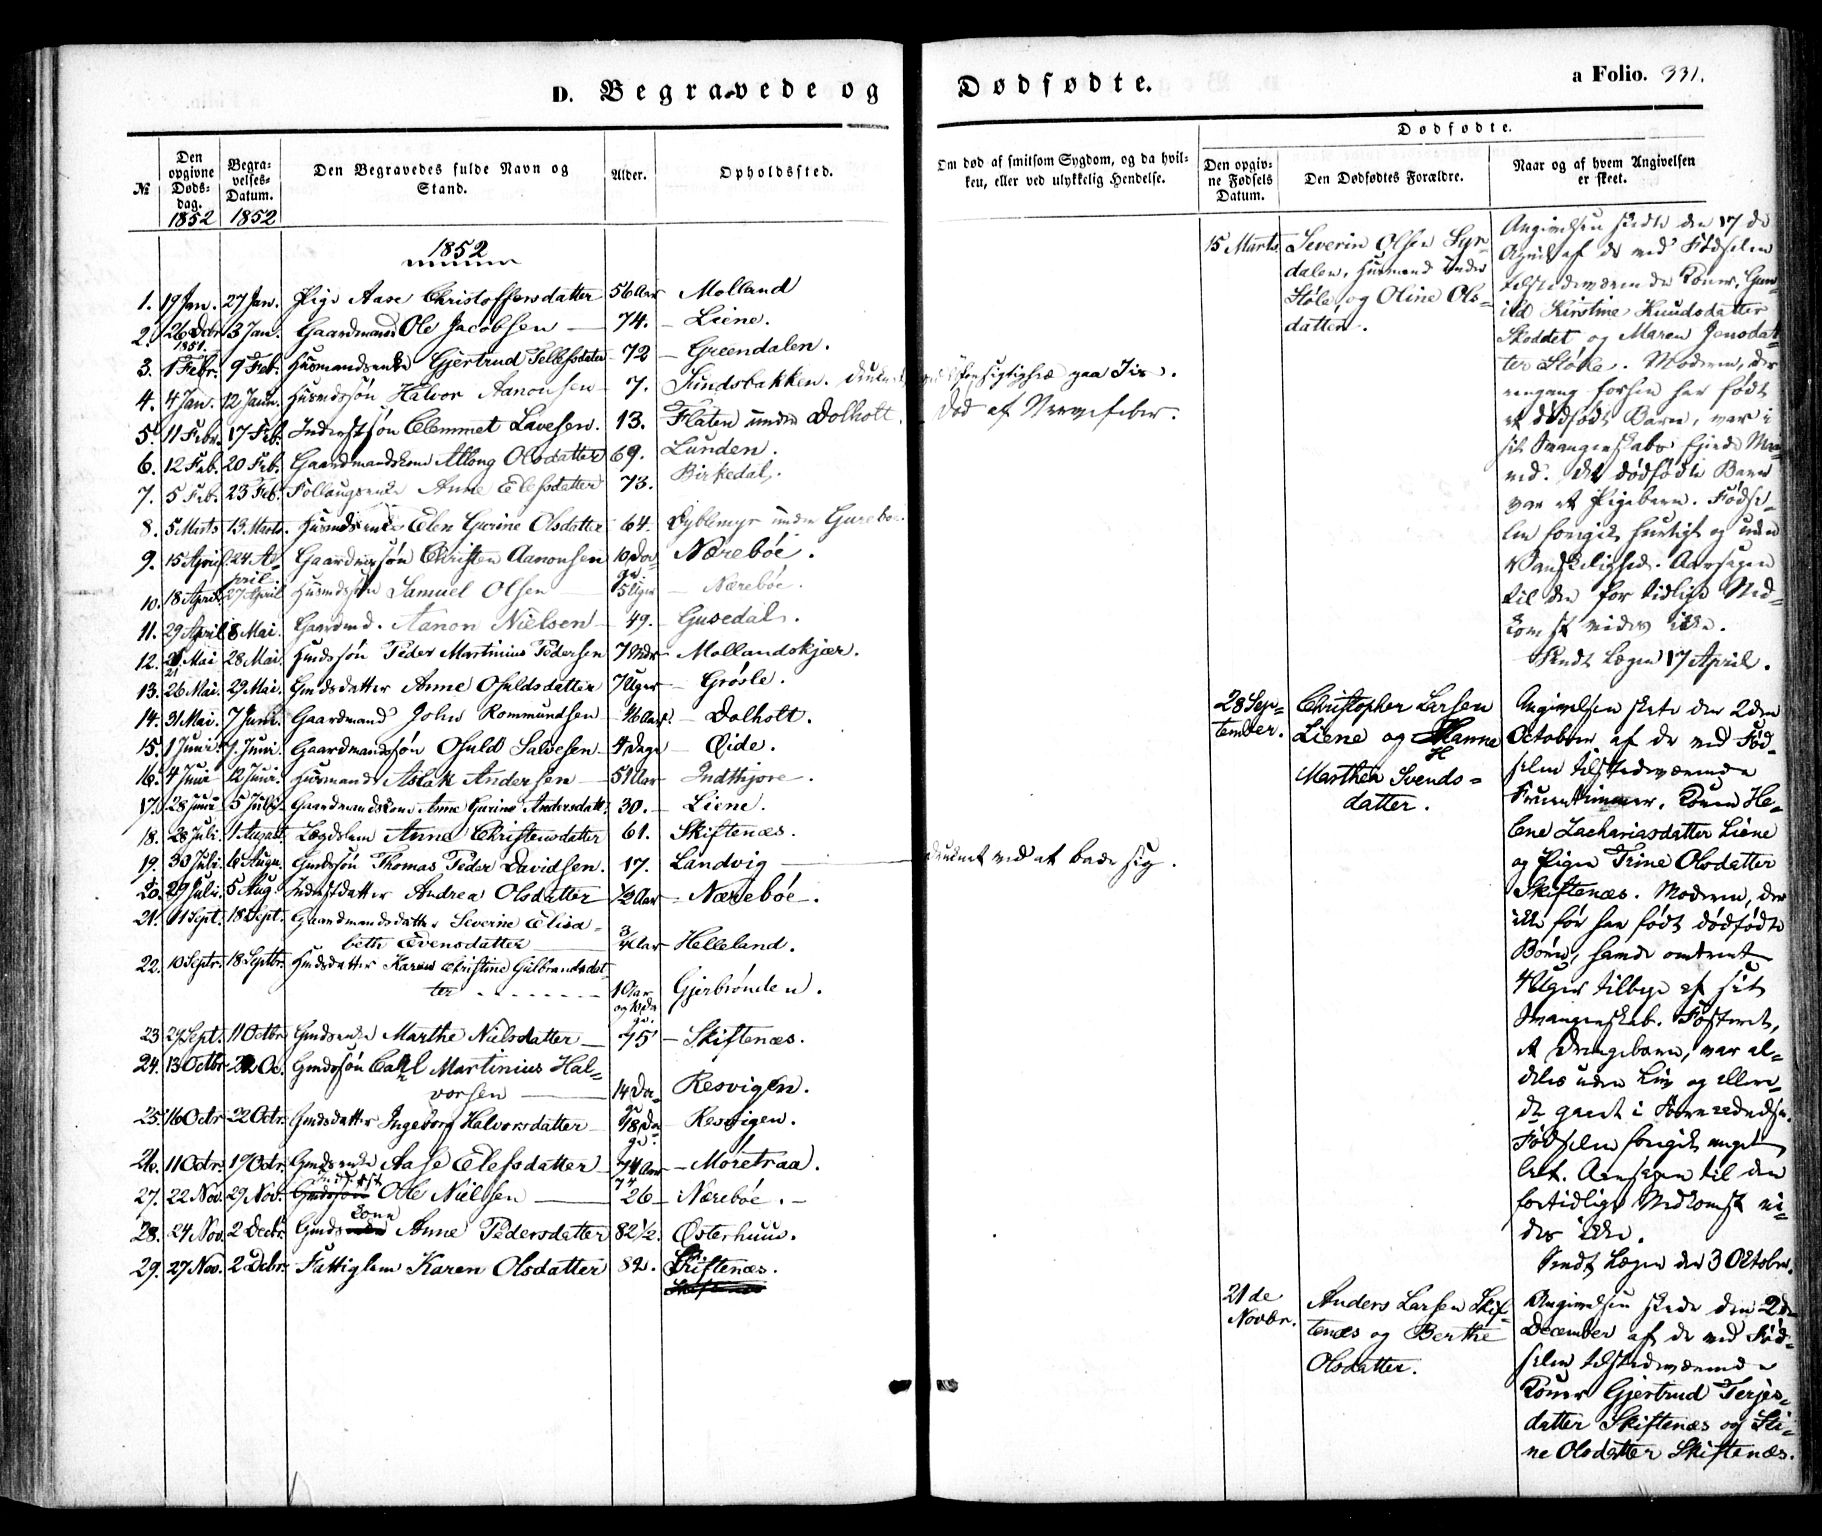 D. Begravede og Dødfødte.
a Folio. 331.
№
Den opgivne Dødsdag. 1852
Begravelses-Datum. 1852
Den Begravedes fulde Navn og Stand.
Alder.
Opholdssted.
Om død af smitsom Sygdom, og da hvilken, eller ved ulykkelig Hendelse.
Dødfødte.
Den opgivne Fødsels Datum.
Den Dødfødtes Forældre.
Naar og af hvem Angivelsen er skeet.
1852
1. 19 Jan. 27 Jan. Pige Aase Christoffersdatter 56 Aar Molland
2. 26 Decbr 1851. 3 Jan. Gaardmand Ole Jacobsen — 74. — Liene.
3. 1 Febr. 9 Feb. Husmandsenke Gjertrud Tellefsdatter 72 — Greendalen.
4. 4 Jan. 12 Janu. Husmdssøn Halvor Aanonsen — 7. Sindsbakken. druknet ved Uforsigtighed paa Iis.
5. 11 Febr. 17 Feb. Inderstsøn Clemmet Lavesen. 13. Flaten under Dolholt. Død af Nervefeber.
6. 12 Feb. 20 Feb. Gaardmandskone Atlong Olsdatter 69. Lunden.
7. 5 Feb. 23 Feb. Follaugsenke Anne Elefsdatter 73. Birkedal.
8. 5 Marts 13 Marts. Husmdsenke Elen Gurine Olsdatter 64. Dyblemyr under Gurebo
9. 15 April. 24 April. Gaardmssøn Christen Aanonsen 10 Dage. Nærebøe.
10. 18 April 27 April Husmdssøn Samuel Olsen 5 Uger — Nærebøe.
11. 29 April 8 Mai. Gaardmd. Aanon Nielsen — 49. — Gusedal.
12. 21 Mai 28 Mai. Gmdssøn Peder Martinius Pedersen 7 Mdr — Mollandskjær.
13. 26 Mai. 29 Mai. Gmdsdatter Anne Osuldsdatter 7 Uger — Grøsle.
14. 31 Mai. 7 Juni. Gaardmand John Rommundsen — 46 Aar. — Dolholt.
15. 1 Juni. 7 Juni. Gaardmandssøn Osuld Salvesen. 4 Dage — Øide.
16. 4 Juni 12 Juni. Husmand Aslak Andersen — 51 Aar Indthjore.
17. 28 Juni 5 Juli. Gaardmandskone Anne Gurine Andersdatt: 30. — Liene.
18. 28 Juli. 1 August. Lægdslem Anne Christensdatter 61. Skiftenæs.
19. 30 Juli. 6 Augu. Gmdssøn Thomas Peder Davidsen. 17. Landvig — druknet ved at bade sig.
20. 29 Juli. 5 Aug. Inderstdatter Andrea Olsdatter 1/2 Aar — Nærebøe.
21. 11 Sept. 18 Sept. Gaardmandsdatter Severine Elisa-
beth Evensdatter — 3/4 Aar — Helleland.
22. 10 Septr. 18 Septbr. Gmdsdatter Karen Christine Gulbrandsdat-
ter - - - - - - - 1 Aar og 10 Dage. Gjerbrønden.
23 27 Sept. 11 Octbr Gmdsenke Marthe Nielsdatter — 75 — Skiftenæs.
24. 13 Octbr 22 Oc. Gmdssøn Carl Martinius Hal-
vorsen — 14 Dage Resvigen.
25. 16 Octr 22 Octr. Gmdsdatter Ingeborg Halvorsdatter — 18 Dage. — Resvigen.
26. 11 Octr. 19 Octr. Gmdsenke Aase Elefsdatter — 74 Aar — Moretraa.
27. 22 Nov. 29 Nov. Inderst Ole Nielsen — 26 — Nærebøe. —
28. 24 Nov. 2 Decbr Gmdskone Anne Pedersdatter 82 1/2. Østerhuus.
29. 27 Nov. 2 Debr. Fattiglem Karen Olsdatter 82. Skiftenæs.
15 Marts Severin Olsen Syr-
dalen, Husmand under
Støle og Oline Ols-
datter.
Angivelsen skede den 17 de
April af de ved Fødselen
tilstedeværende Koner, Gun-
ild Kirstine Knudsdatter
Skoddet og Maren Jensdat-
ter Støle. Moderen, der
engang forhen har født
et dødfødt Barn, var i
sit Svangerskabs fjerde Maa-
ned. Det dødfødte Barn
var et Pigebarn. Fødse-
len foregik hurtigt og uden
Vanskelighed. Aarsagen
til den for tidlige Ned-
komst vides ikke.
Sendt Lægen 17 April.
28 Sep-
tember.
Christopher Larsen
Liene og Hanne
Marthea Svends-
datter.
Angivelsen skete den 2den
October af de ved Fød-
selen tilstedeværende
Fruentimmer, Konen He-
lene Zachariasdatter Liene
og Pigen Trine Olsdatter
Skiftenæs. Moderen, der
ikke før har født dødfødte
Børn, havde omtrent
4 Uger tilbage af sit
Svangerskab. Fosteret,
et Drengebarn, var al-
deles uden Liv og allere-
de gaaet i Forraadnelse.
Fødselen foregik meget
let. Aarsagen til den
fortidlige Nedkomst vi-
des ikke.
Sendt Lægen den 3 October.
21 de
Novbr.
Anders Larsen Skif-
tenæs og Berthe
Olsdatter.
Angivelsen skede den 2 de
December af de ved Fød-
selen tilstedeværende
Koner Gjertrud Terjes-
datter Skiftenæs og Sti-
ne Olsdatter Skiftenæs.